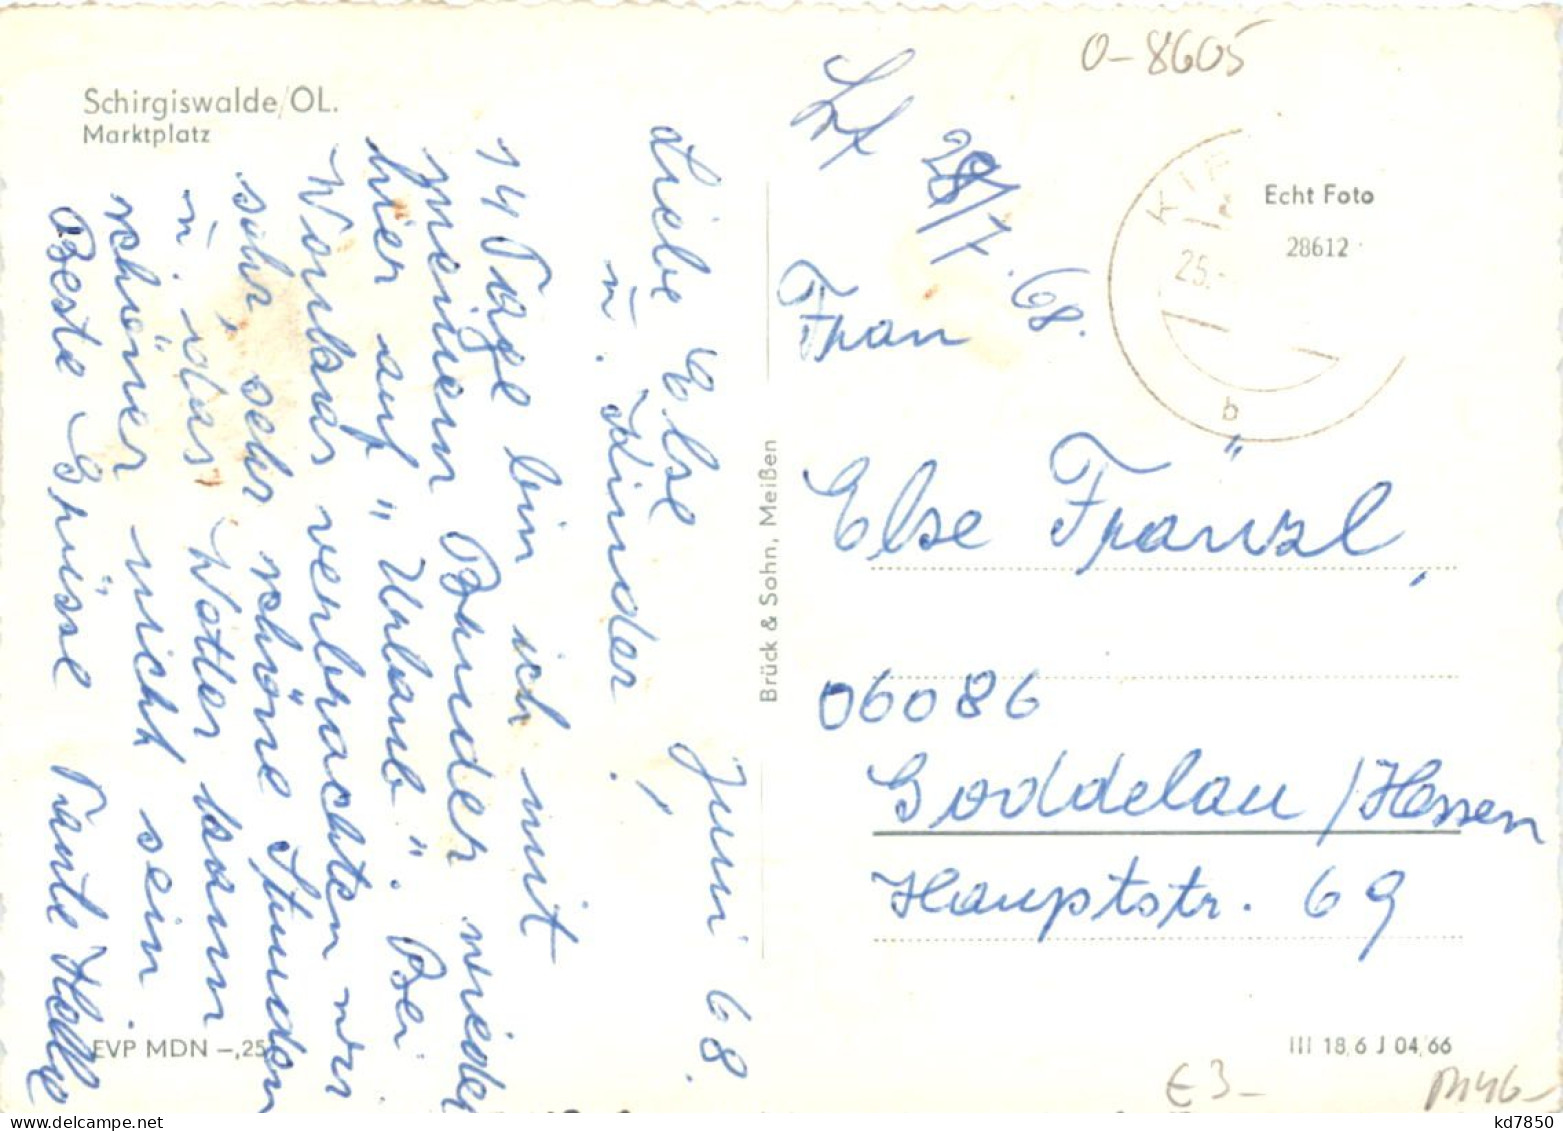 Schirgiswalde/OL.
Marktplatz
Juni 68.
Liebe Else
u. Kinder!
14 Tage bin ich mit
meinem Bruder wieder
hier auf "Urlaub". Bei
Wonkas verbrachten wir
sehr, sehr schöne Stunden
u. das Wetter kann
schöner nicht sein.
Beste Grüsse Tante Hedl
EVP MDN –,25
Brück & Sohn, Meißen
0-8605
28/7.68.
Echt Foto
28612
25.
b
Frau
Else Fränzl,
06086
Goddelau/Hessen
Hauptstr. 69
III 18,6 J 04/66
€ 3-
M46-
kd7850